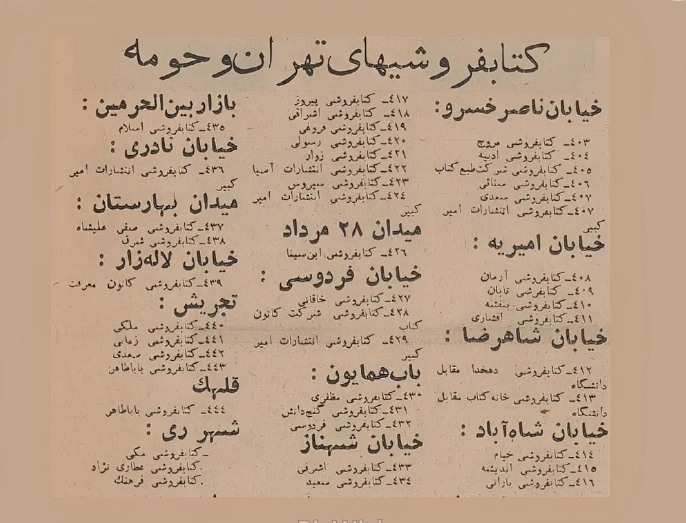 کتابفروشیهای تهران و حومه
خیابان ناصرخسرو:
۴۰۳ـ کتابفروشی مروج
۴۰۴ـ کتابفروشی ادبیه
۴۰۵ـ کتابفروشی شرکت طبع کتاب
۴۰۶ـ کتابفروشی سنائی
۴۰۷ـ کتابفروشی سعدی
۴۰۷ـ کتابفروشی انتشارات امیر
کبیر
خیابان امیریه :
۴۰۸ـ کتابفروشی آرمان
۴۰۹ـ کتابفرشی تابان
۴۱۰ـ کتابفروشی بنفشه
۴۱۱ـ کتابفروشی افشاری
خیابان شاهرضا :
۴۱۲ـ کتابفروشی دهخدا مقابل
دانشگاه
۴۱۳ـ کتابفروشی خانه کتاب مقابل
دانشگاه
خیابان شاه‌آباد :
۴۱۴ـ کتابفروشی خیام
۴۱۵ـ کتابفروشی اندیشه
۴۱۶ـ کتابفروشی بارانی
۴۱۷ـ کتابفروشی پیروز
۴۱۸ـ کتابفروشی اشراقی
۴۱۹ـ کتابفروشی فروغی
۴۲۰ـ کتابفروشی رسولی
۴۲۱ـ کتابفروشی زوار
۴۲۲ـ کتابفروشی انتشارات آسیا
۴۲۳ـ کتابفروشی سیروس
۴۲۴ـ کتابفروشی انتشارات امیر
کبیر
میدان ۲۸ مرداد
۴۲۶ـ کتابفروشی ابن‌سینا
خیابان فردوسی :
۴۲۷ـ کتابفروشی خاقانی
۴۲۸ـ کتابفروشی شرکت کانون
کتاب
۴۲۹ـ کتابفروشی انتشارات امیر
کبیر
باب‌همایون :
۴۳۰ـ کتابفروشی مظفری
۴۳۱ـ کتابفروشی گنج‌دانش
۴۳۲ـ کتابفروشی فردوسی
خیابان شهناز
۴۳۳ـ کتابفروشی اشرفی
۴۳۴ـ کتابفروشی سعید
بازار بین‌الحرمین :
۴۳۵ـ کتابفروشی اسلام
خیابان نادری :
۴۳۶ـ کتابفروشی انتشارات امیر
کبیر
میدان بهارستان :
۴۳۷ـ کتابفروشی صفی علیشاه
۴۳۸ـ کتابفروشی شرق
خیابان لاله‌زار :
۴۳۹ـ کتابفروشی کانون معرفت
تجریش :
۴۴۰ـ کتابفروشی ملکی
۴۴۱ـ کتابفروشی زمانی
۴۴۲ـ کتابفروشی سعدی
۴۴۳ـ کتابفروشی باباطاهر
قلهك
۴۴۴ـ کتابفروشی باباطاهر
شهر ری :
ـ کتابفروشی مکی
ـ کتابفروشی عطاری نژاد
ـ کتابفروشی فرهنك